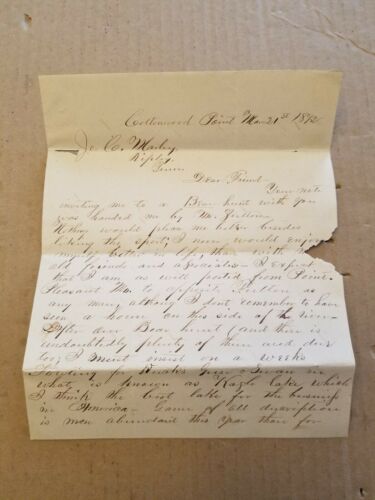 Cottonwood Point Mo. 21st 1872
Jo. C. Marley
Ripley
Tenn
Dear Friend
Your note
inviting me to a Bear hunt with you
was handed me by Mr.
Nothing would please me better besides
liking the sport, I never would enjoy
myself better in life, than with my
old friends and associates. I expect
that I am as well posted from Point
Pleasant Mo. to opposite Fulton as
any man, although I dont remember to have
seen a horn on this side of the river
After our Bear hunt (and there is
undoubtedly plenty of them and deer
too) I must insist on a weeks
Hunting for Ducks Geese & Swan in
what is known as Eagle lake, which
I think the best lake for the business
in America. Game of all discription
is more abundant this year than for